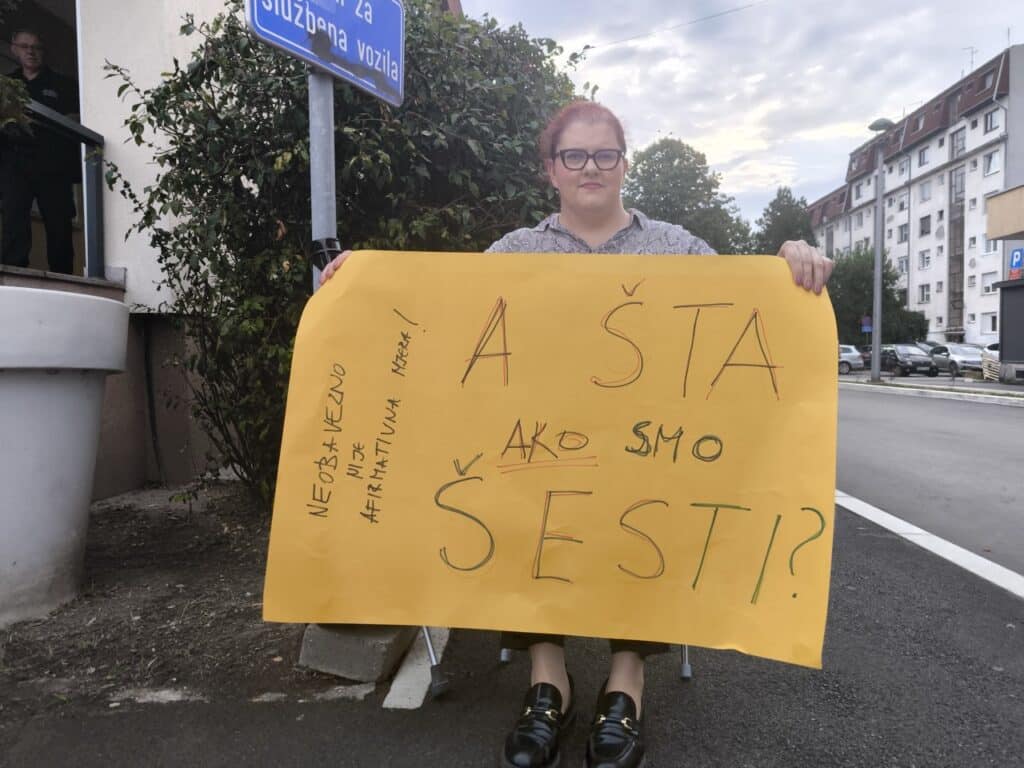 za
službena vozila
A ŠTA
AKO SMO
ŠESTI?
NEOBAVEZNO
NIJE
AFIRMATIVNA MJERA!
P